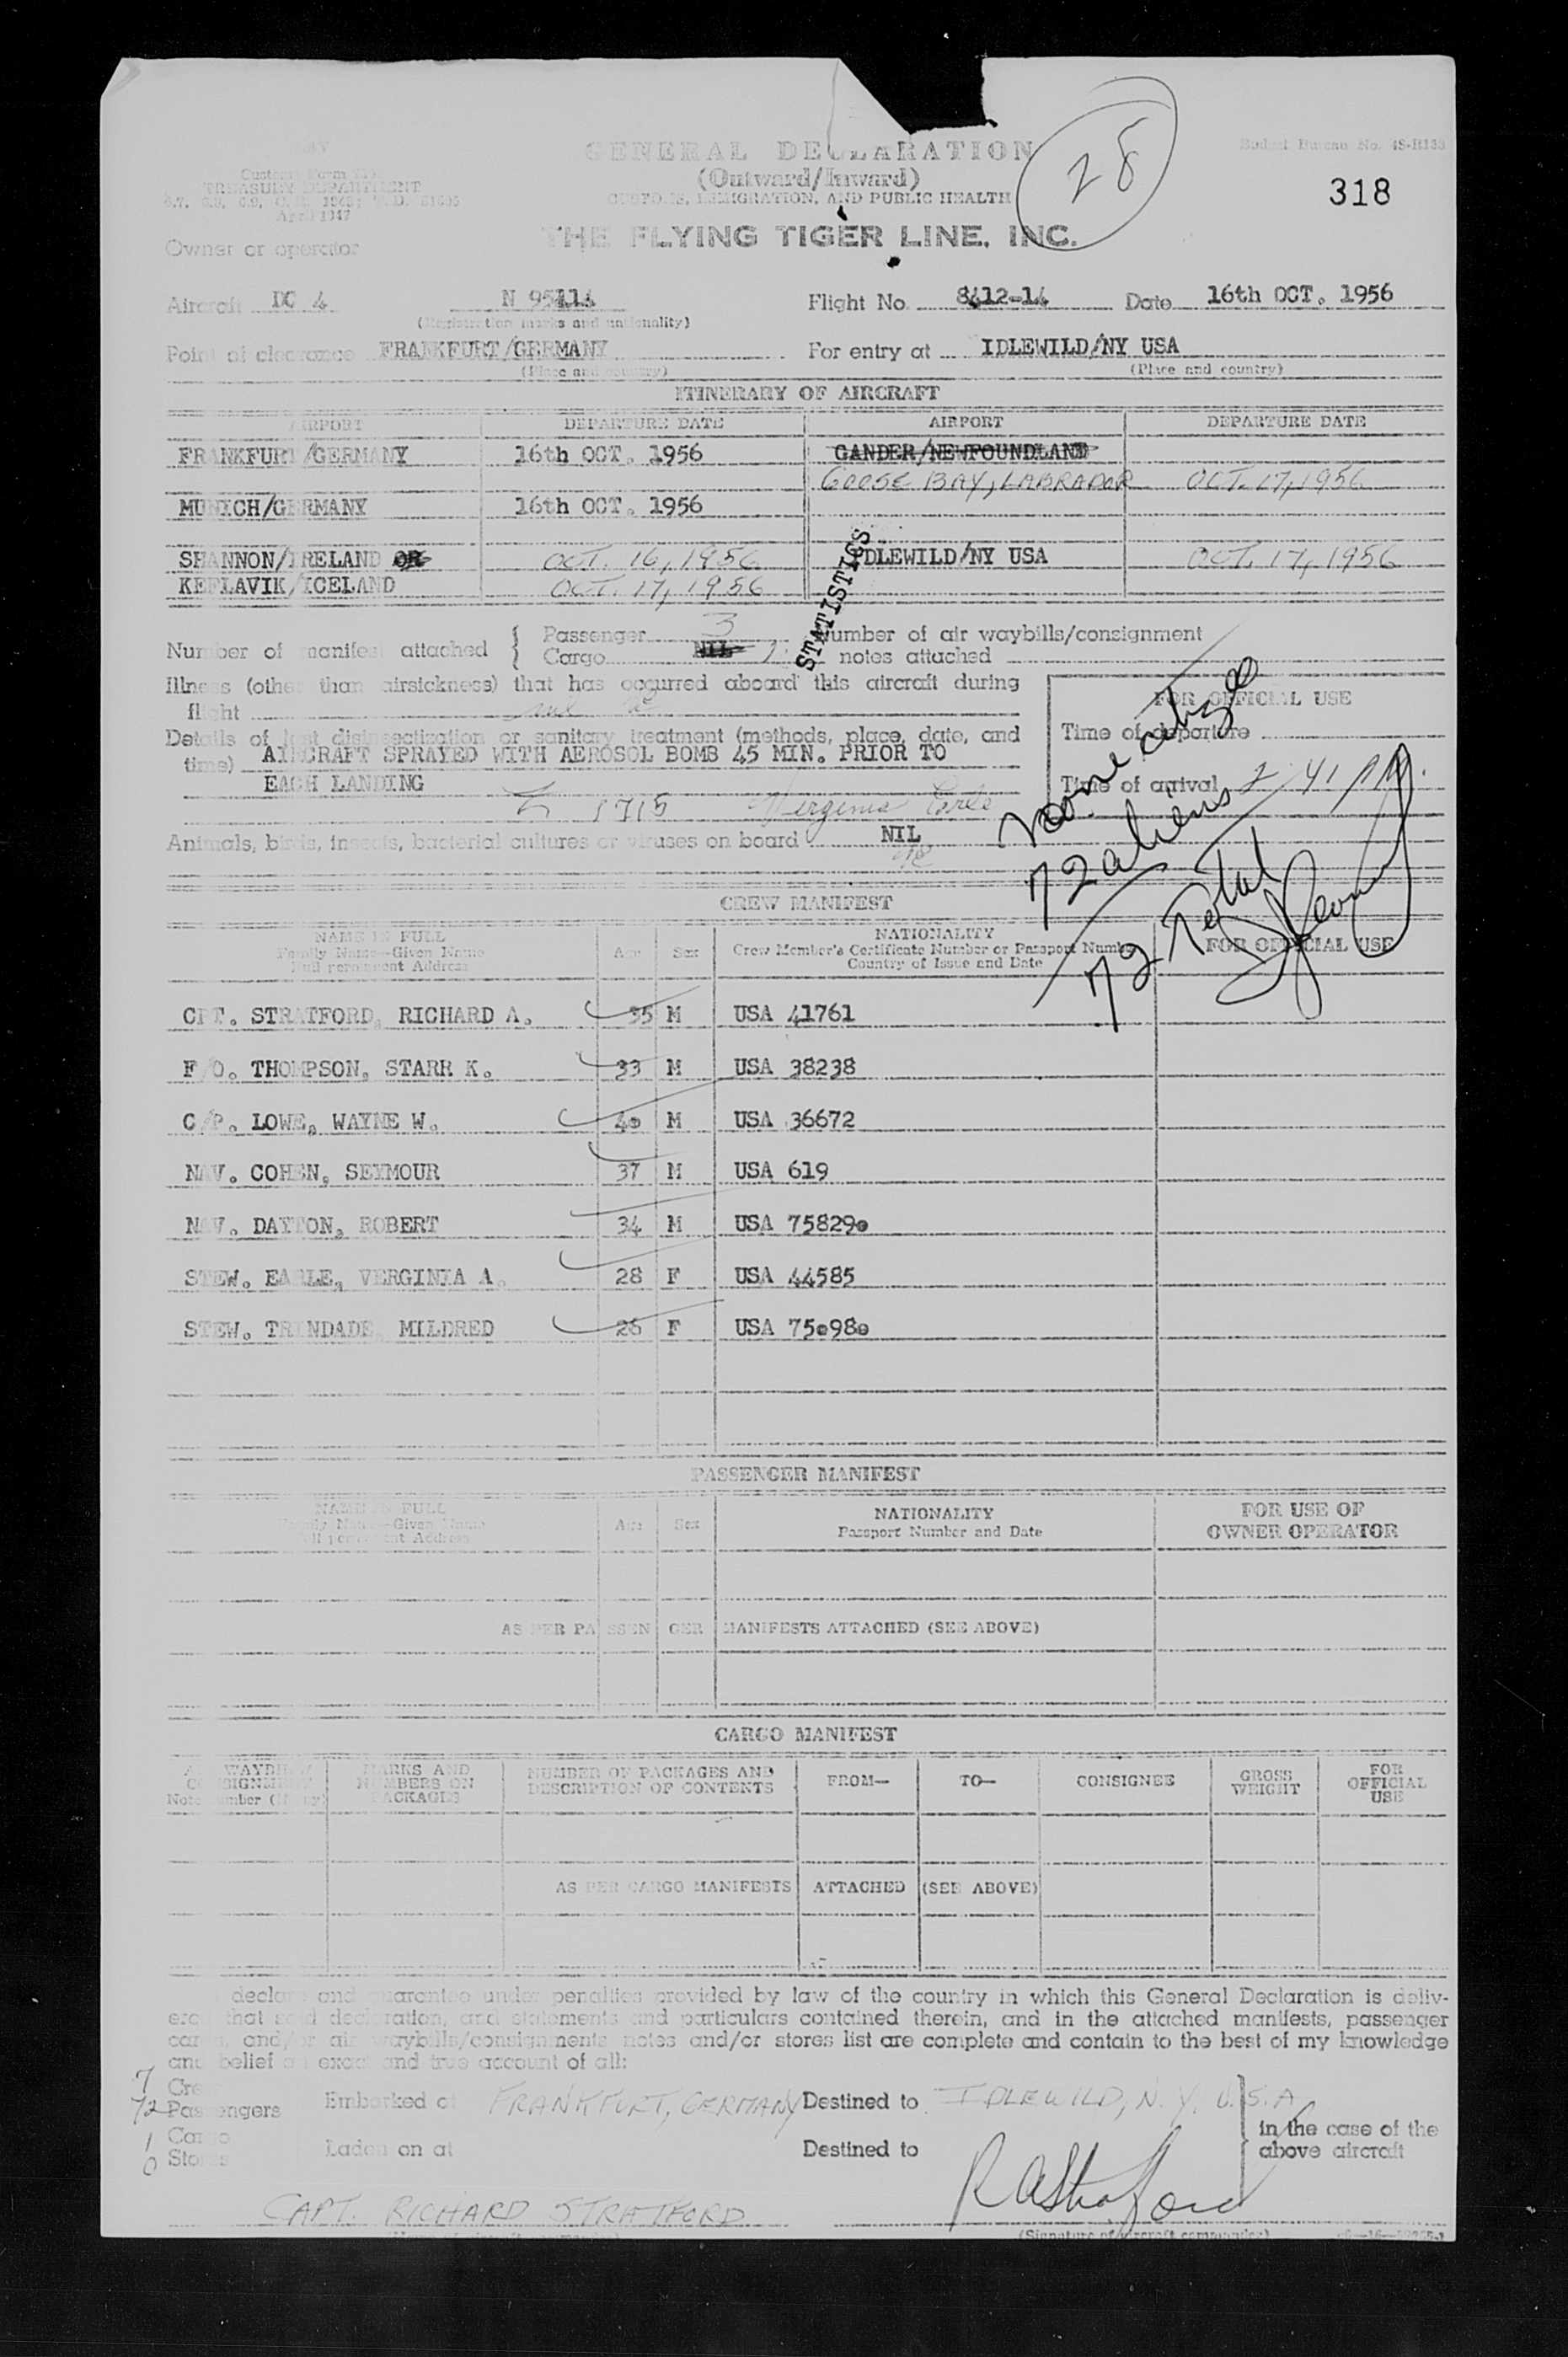 GENERAL DECLARATION
(Outward/Inward)
CUSTOMS, IMMIGRATION, AND PUBLIC HEALTH
28
Budget Bureau No. 48-R133
318
Customs Form
TREASURY DEPARTMENT
April 1947
Owner or operator
THE FLYING TIGER LINE, INC.
Aircraft DC 4 N 95414 Flight No. 8412-14 Date 16th OCT. 1956
(Registration marks and nationality)
Point of clearance FRANKFURT/GERMANY For entry at IDLEWILD/NY USA
(Place and country) (Place and country)
ITINERARY OF AIRCRAFT
AIRPORT DEPARTURE DATE AIRPORT DEPARTURE DATE
FRANKFURT/GERMANY 16th OCT. 1956 GANDER/NEWFOUNDLAND
GOOSE BAY, LABRADOR OCT. 17, 1956
MUNICH/GERMANY 16th OCT. 1956
SHANNON/IRELAND OR OCT. 16, 1956 IDLEWILD/NY USA OCT. 17, 1956
KEFLAVIK/ICELAND OCT. 17, 1956
STATISTICS
Number of manifest attached { Passenger 3 Number of air waybills/consignment
Cargo NIL 1 notes attached
Illness (other than airsickness) that has occurred aboard this aircraft during
flight nil
FOR OFFICIAL USE
Details of last disinsectization or sanitary treatment (methods, place, date, and
time) AIRCRAFT SPRAYED WITH AEROSOL BOMB 45 MIN. PRIOR TO
EACH LANDING
Time of departure
Time of arrival 2:41 PM.
1715 Virginia Earle
Animals, birds, insects, bacterial cultures or viruses on board NIL
none citizee
72 aliens
72 Total
CREW MANIFEST
NAME IN FULL
Family Name—Given Name
Full permanent Address
Age Sex
NATIONALITY
Crew Member's Certificate Number or Passport Number
Country of Issue and Date
FOR OFFICIAL USE
CPT. STRATFORD, RICHARD A. 35 M USA 41761
F/O. THOMPSON, STARR K. 33 M USA 38238
C/P. LOWE, WAYNE W. 40 M USA 36672
NAV. COHEN, SEYMOUR 37 M USA 619
NAV. DAYTON, ROBERT 34 M USA 758290
STEW. EARLE, VERGINIA A. 28 F USA 44585
STEW. TRINDADE, MILDRED 26 F USA 750980
PASSENGER MANIFEST
NAME IN FULL
Family Name—Given Name
Full permanent Address
Age Sex
NATIONALITY
Passport Number and Date
FOR USE OF
OWNER OPERATOR
AS PER PASSENGER MANIFESTS ATTACHED (SEE ABOVE)
CARGO MANIFEST
AIR WAYBILL
CONSIGNMENT
Note Number
MARKS AND
NUMBERS ON
PACKAGES
NUMBER OF PACKAGES AND
DESCRIPTION OF CONTENTS
FROM— TO— CONSIGNEE
GROSS
WEIGHT
FOR
OFFICIAL
USE
AS PER CARGO MANIFESTS ATTACHED (SEE ABOVE)
declare and guarantee under penalties provided by law of the country in which this General Declaration is deliv-
ered that said declaration, and statements and particulars contained therein, and in the attached manifests, passenger
cargo, and/or air waybills/consignments notes and/or stores list are complete and contain to the best of my knowledge
and belief an exact and true account of all:
7 Crew
72 Passengers Embarked at FRANKFURT, GERMANY Destined to IDLEWILD, N.Y. U.S.A.
in the case of the
above aircraft
1 Cargo
0 Stores Laden on at Destined to
CAPT. RICHARD STRATFORD RA Stratford
(Signature of aircraft commander)